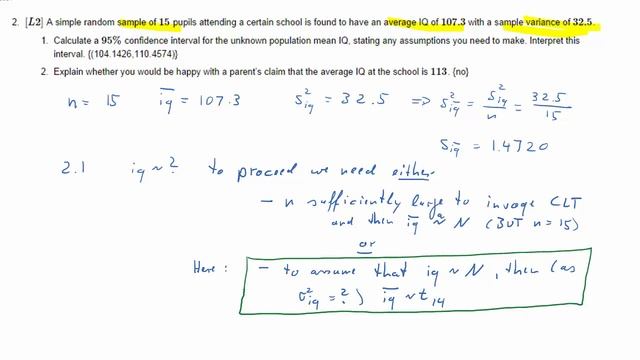 2. [L2] A simple random sample of 15 pupils attending a certain school is found to have an average IQ of 107.3 with a sample variance of 32.5.
1. Calculate a 95% confidence interval for the unknown population mean IQ, stating any assumptions you need to make. Interpret this
interval. {(104.1426,110.4574)}
2. Explain whether you would be happy with a parent's claim that the average IQ at the school is 113. {no}
n = 15 iq̄ = 107.3 s²iq = 32.5 ⇒ s²iq̄ = s²iq / n = 32.5 / 15
siq̄ = 1.4720
2.1 iq ~ ? to proceed we need either
– n sufficiently large to invoke CLT
and then iq̄ ~ᵃ N (BUT n = 15)
or
Here : – to assume that iq ~ N, then (as
σ²iq = ?) iq̄ ~ t14